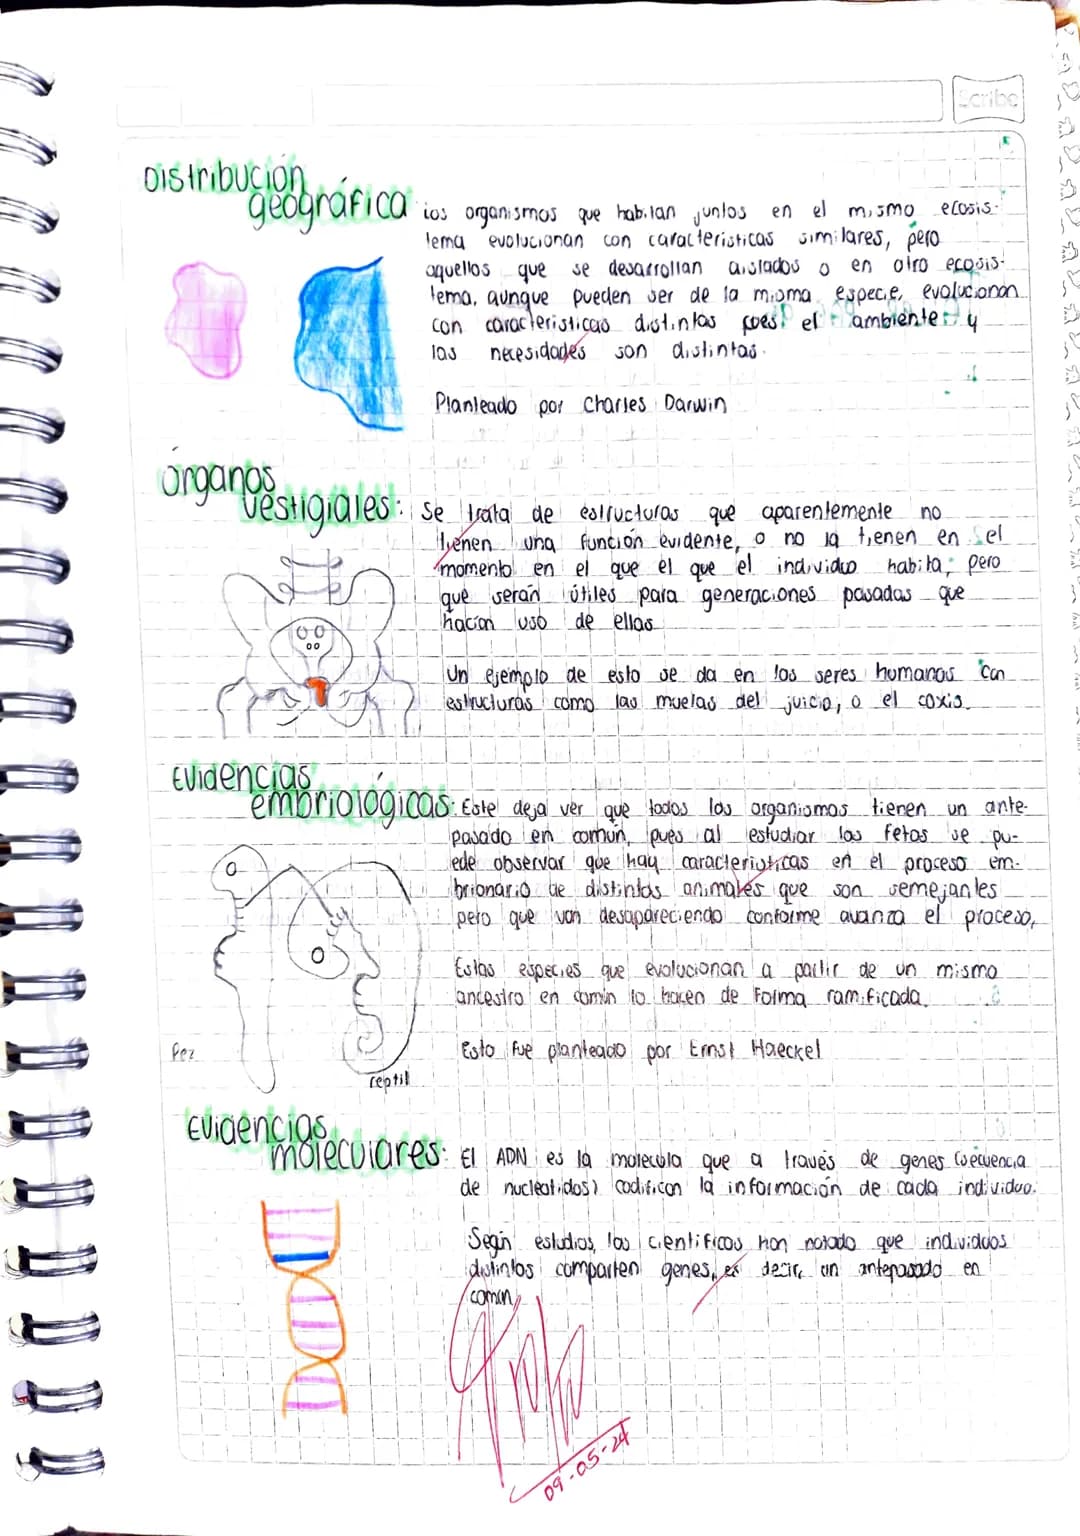 Scribe
Distribución
geográfica
los organismos que habitan juntos en el mismo ecosis-
tema evolucionan con características similares, pero
aquellos que se desarrollan aislados o en otro ecosis-
tema, aunque pueden ser de la misma especie, evolucionan
con características distintas pues el ambiente y
las necesidades son distintas.
Planteado por Charles Darwin
Órganos
vestigiales: Se trata de estructuras que aparentemente no
tienen una función evidente, o no la tienen en el
momento en el que el que el individuo habita, pero
que serán útiles para generaciones pasadas que
hacían uso de ellas
Un ejemplo de esto se da en los seres humanos con
estructuras como las muelas del juicio, o el coxis.
Evidencias
embriológicas: Este deja ver que todos los organismos tienen un ante-
pasado en común, pues al estudiar los fetos se pu-
ede observar que hay características en el proceso em-
brionario de distintos animales que son semejantes
pero que van desapareciendo conforme avanza el proceso,
Estas especies que evolucionan a partir de un mismo
ancestro en común lo hacen de forma ramificada.
Pez
Esto fue planteado por Ernst Haeckel
reptil
Evidencias
moleculares: El ADN es la molecula que a través de genes (secuencia
de nucleotidos) codifican la información de cada individuo.
Según estudios, los científicos han notado que individuos
distintos comparten genes, es decir, un antepasado en
común,
09-05-24